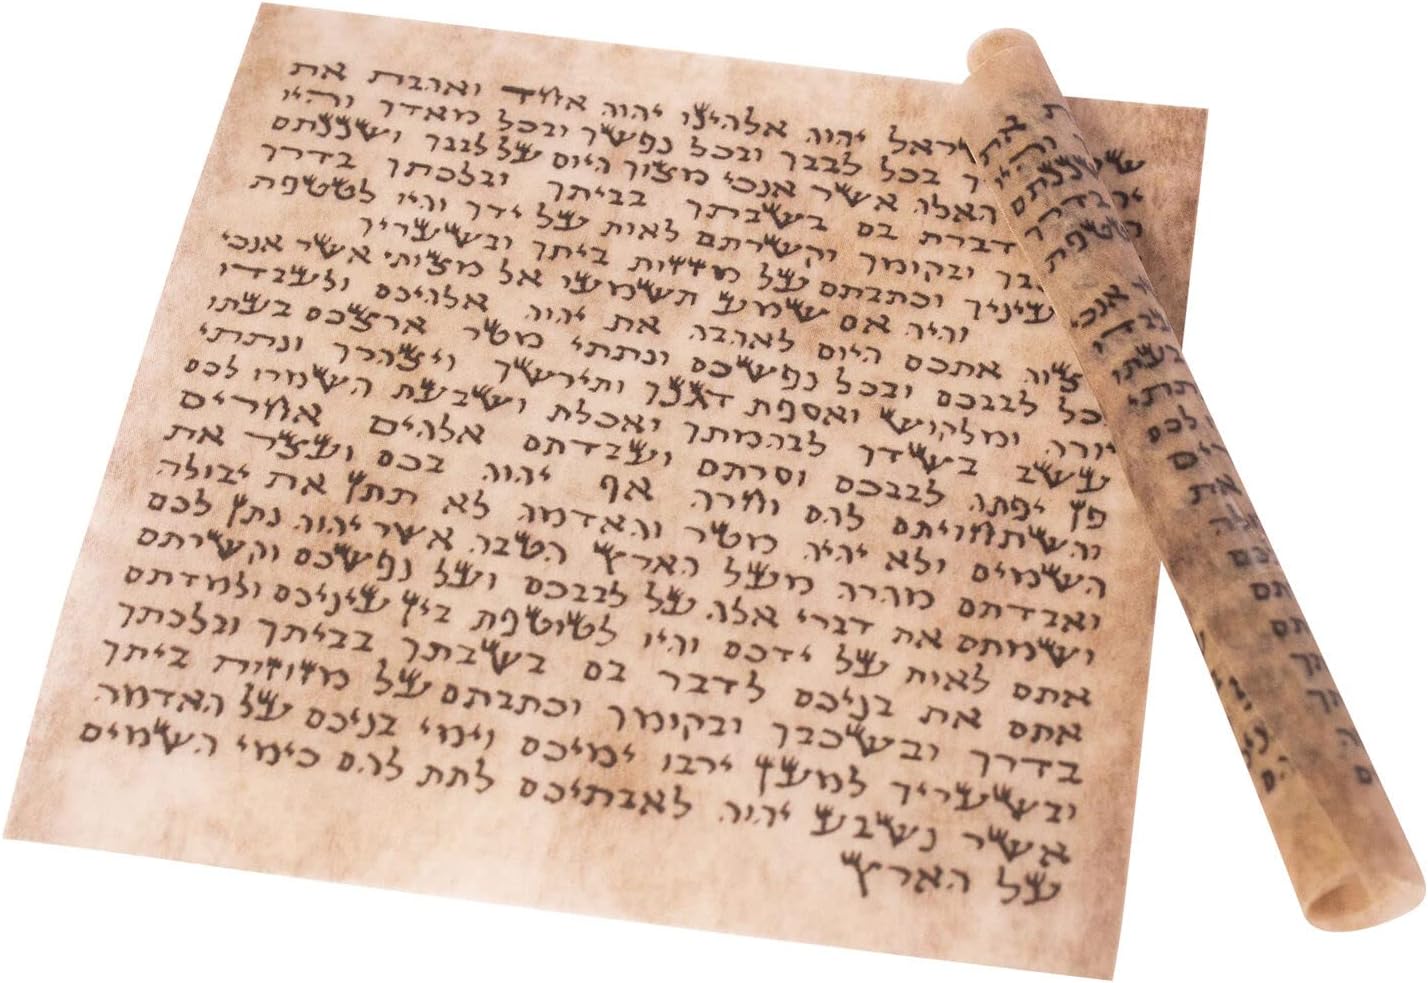 ישראל יהוה אלהינו יהוה אחד ואהבת את
בכל לבבך ובכל נפשך ובכל מאדך והיו
האלה אשר אנכי מצוך היום על לבבך ושננתם
דברת בם בשבתך בביתך ובלכתך בדרך
ובקומך וקשרתם לאות על ידך והיו לטטפת
עיניך וכתבתם על מזוזות ביתך ובשעריך
והיה אם שמע תשמעו אל מצותי אשר אנכי
מצוה אתכם היום לאהבה את יהוה אלהיכם ולעבדו
בכל לבבכם ובכל נפשכם ונתתי מטר ארצכם בעתו
יורה ומלקוש ואספת דגנך ותירשך ויצהרך ונתתי
עשב בשדך לבהמתך ואכלת ושבעת השמרו לכם
פן יפתה לבבכם וסרתם ועבדתם אלהים אחרים
והשתחויתם להם וחרה אף יהוה בכם ועצר את
השמים ולא יהיה מטר והאדמה לא תתן את יבולה
ואבדתם מהרה מעל הארץ הטבה אשר יהוה נתן לכם
ושמתם את דברי אלה על לבבכם ועל נפשכם וקשרתם
אתם לאות על ידכם והיו לטוטפת בין עיניכם ולמדתם
אתם את בניכם לדבר בם בשבתך בביתך ובלכתך
בדרך ובשכבך ובקומך וכתבתם על מזוזות ביתך
ובשעריך למען ירבו ימיכם וימי בניכם על האדמה
אשר נשבע יהוה לאבתיכם לתת להם כימי השמים
על הארץ